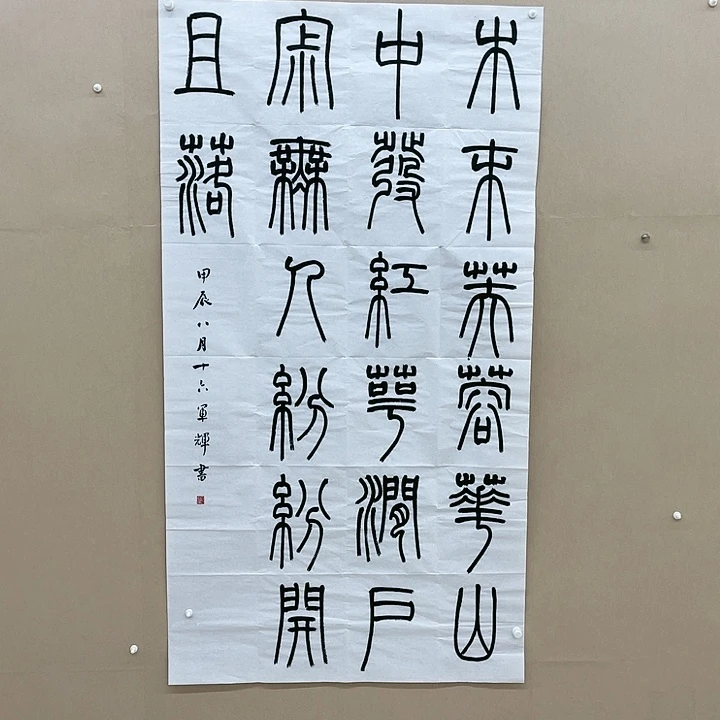 木末芙蓉華山
中發紅萼澗戶
寂無人紛紛開
且落
甲辰八月十六軍輝書